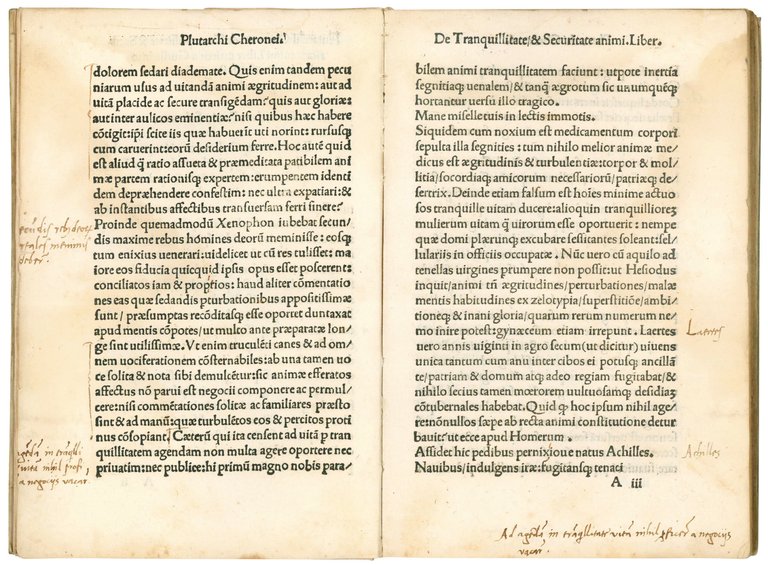 Plutarchi Cheronei.
dolorem sedari diademate. Quis enim tandem pecu
niarum usus ad vitandā animi ægritudinem: aut ad
vitā placide ac secure transigēdam: quis aut gloriæ:
aut inter aulicos eminentiæ: nisi quibus hæc habere
cōtigit: ipi scite iis quæ habuerīt uti norint: rursusq;
cum caruerint: eorū desiderium ferre. Hoc autē quid
est aliud q̄ ratio assueta & præmeditata patibilem ani
mæ partem rationisq; expertem: erumpentem identi
dem depræhendere confestim: nec ultra expatiari: &
ab instantibus affectibus transuersam ferri sinere:
Proinde quemadmodū Xenophon iubebat secun/
dis maxime rebus homines deorū meminisse: eosq;
tum enixius uenerari: uidelicet ut cū res tulisset: ma
iore eos fiducia quicquid ipsis opus esset poscerent:
conciliatos iam & propitios: haud aliter cōmentatio
nes eas quæ sedandis pturbationibus appositissimæ
sunt/ præsumptas recōditasq; esse oportet duntaxat
apud mentis cōpotes/ ut multo ante præparatæ lon/
ge sint utilissimæ. Vt enim truculēti canes & ad om/
nem uociferationem cōsternabiles: ab una tamen uo
ce solita & nota sibi demulcētur: sic animæ efferatos
affectus nō parui est negocii componere ac permul/
cere: nisi commētationes solitæ ac familiares præsto
sint & ad manū: quæ turbulētos eos & percitos proti
nus cōsopiant. Cæterū qui ita censent ad vitā in tran
quillitatem agendam non multa agere oportere nec
priuatim: nec publice: hi primū magno nobis para/
vitā nihil profi
a negocijs vacar
De Tranquillitate/& Securitate animi. Liber.
bilem animi tranquillitatem faciunt: utpote inertia
segnitiaq; uenalem/ & tanq̄ ægrotum sic unumquēq;
hortantur versu illo tragico.
Mane miselle tuis in lectis immotis.
Siquidem cum noxium est medicamentum corpori
sepulta illa segnities: tum nihilo melior animæ me/
dicus est ægritudinis & turbulentiæ: torpor & mol/
litia/ socordiaq; amicorum necessariorū/ patriæq; de/
sertrix. Deinde etiam falsum est hoīes minime actuo
sos tranquille vitam ducere: alioquin tranquilliorēz
mulierum uitam q̄ uirorum esse oportuerit: nempe
quæ domi plærunq; excubare sessitantes soleant: sel/
lulariis in officiis occupatæ. Nūc uero cū aquilo ad
tenellas uirgines prumpere non possit: ut Hesiodus
inquit/ animi tn̄ ægritudines/ perturbationes/ malæ
mentis habitudines ex zelotypia/ superstitiōe/ ambi/
tioneq; & inani gloria/ quarum rerum numerum ne/
mo inire potest: gynæceum etiam irrepunt. Laertes
uero annis uiginti in agro secum (ut dicitur) uiuens
unica tantum cum anu inter cibos ei potusq; ancillā/
te/ patriam & domum atq; adeo regiam fugitabat/ &
nihilo secius tamen mœrorem uultuosamq; desidiaz
cōtubernales habebat. Quid q̄ hoc ipsum nihil age/
re: nō nullos sæpe ab recta animi constitutione detur
bauit: ut ecce apud Homerum.
Assidet hic pedibus pernix ioue natus Achilles.
Nauibus/ indulgens iræ: fugitansq; tenaci
A iii
Laertes
Achilles
Ad agēdā in trāqllitate vitā nihil pficer a negocijs
vacar.